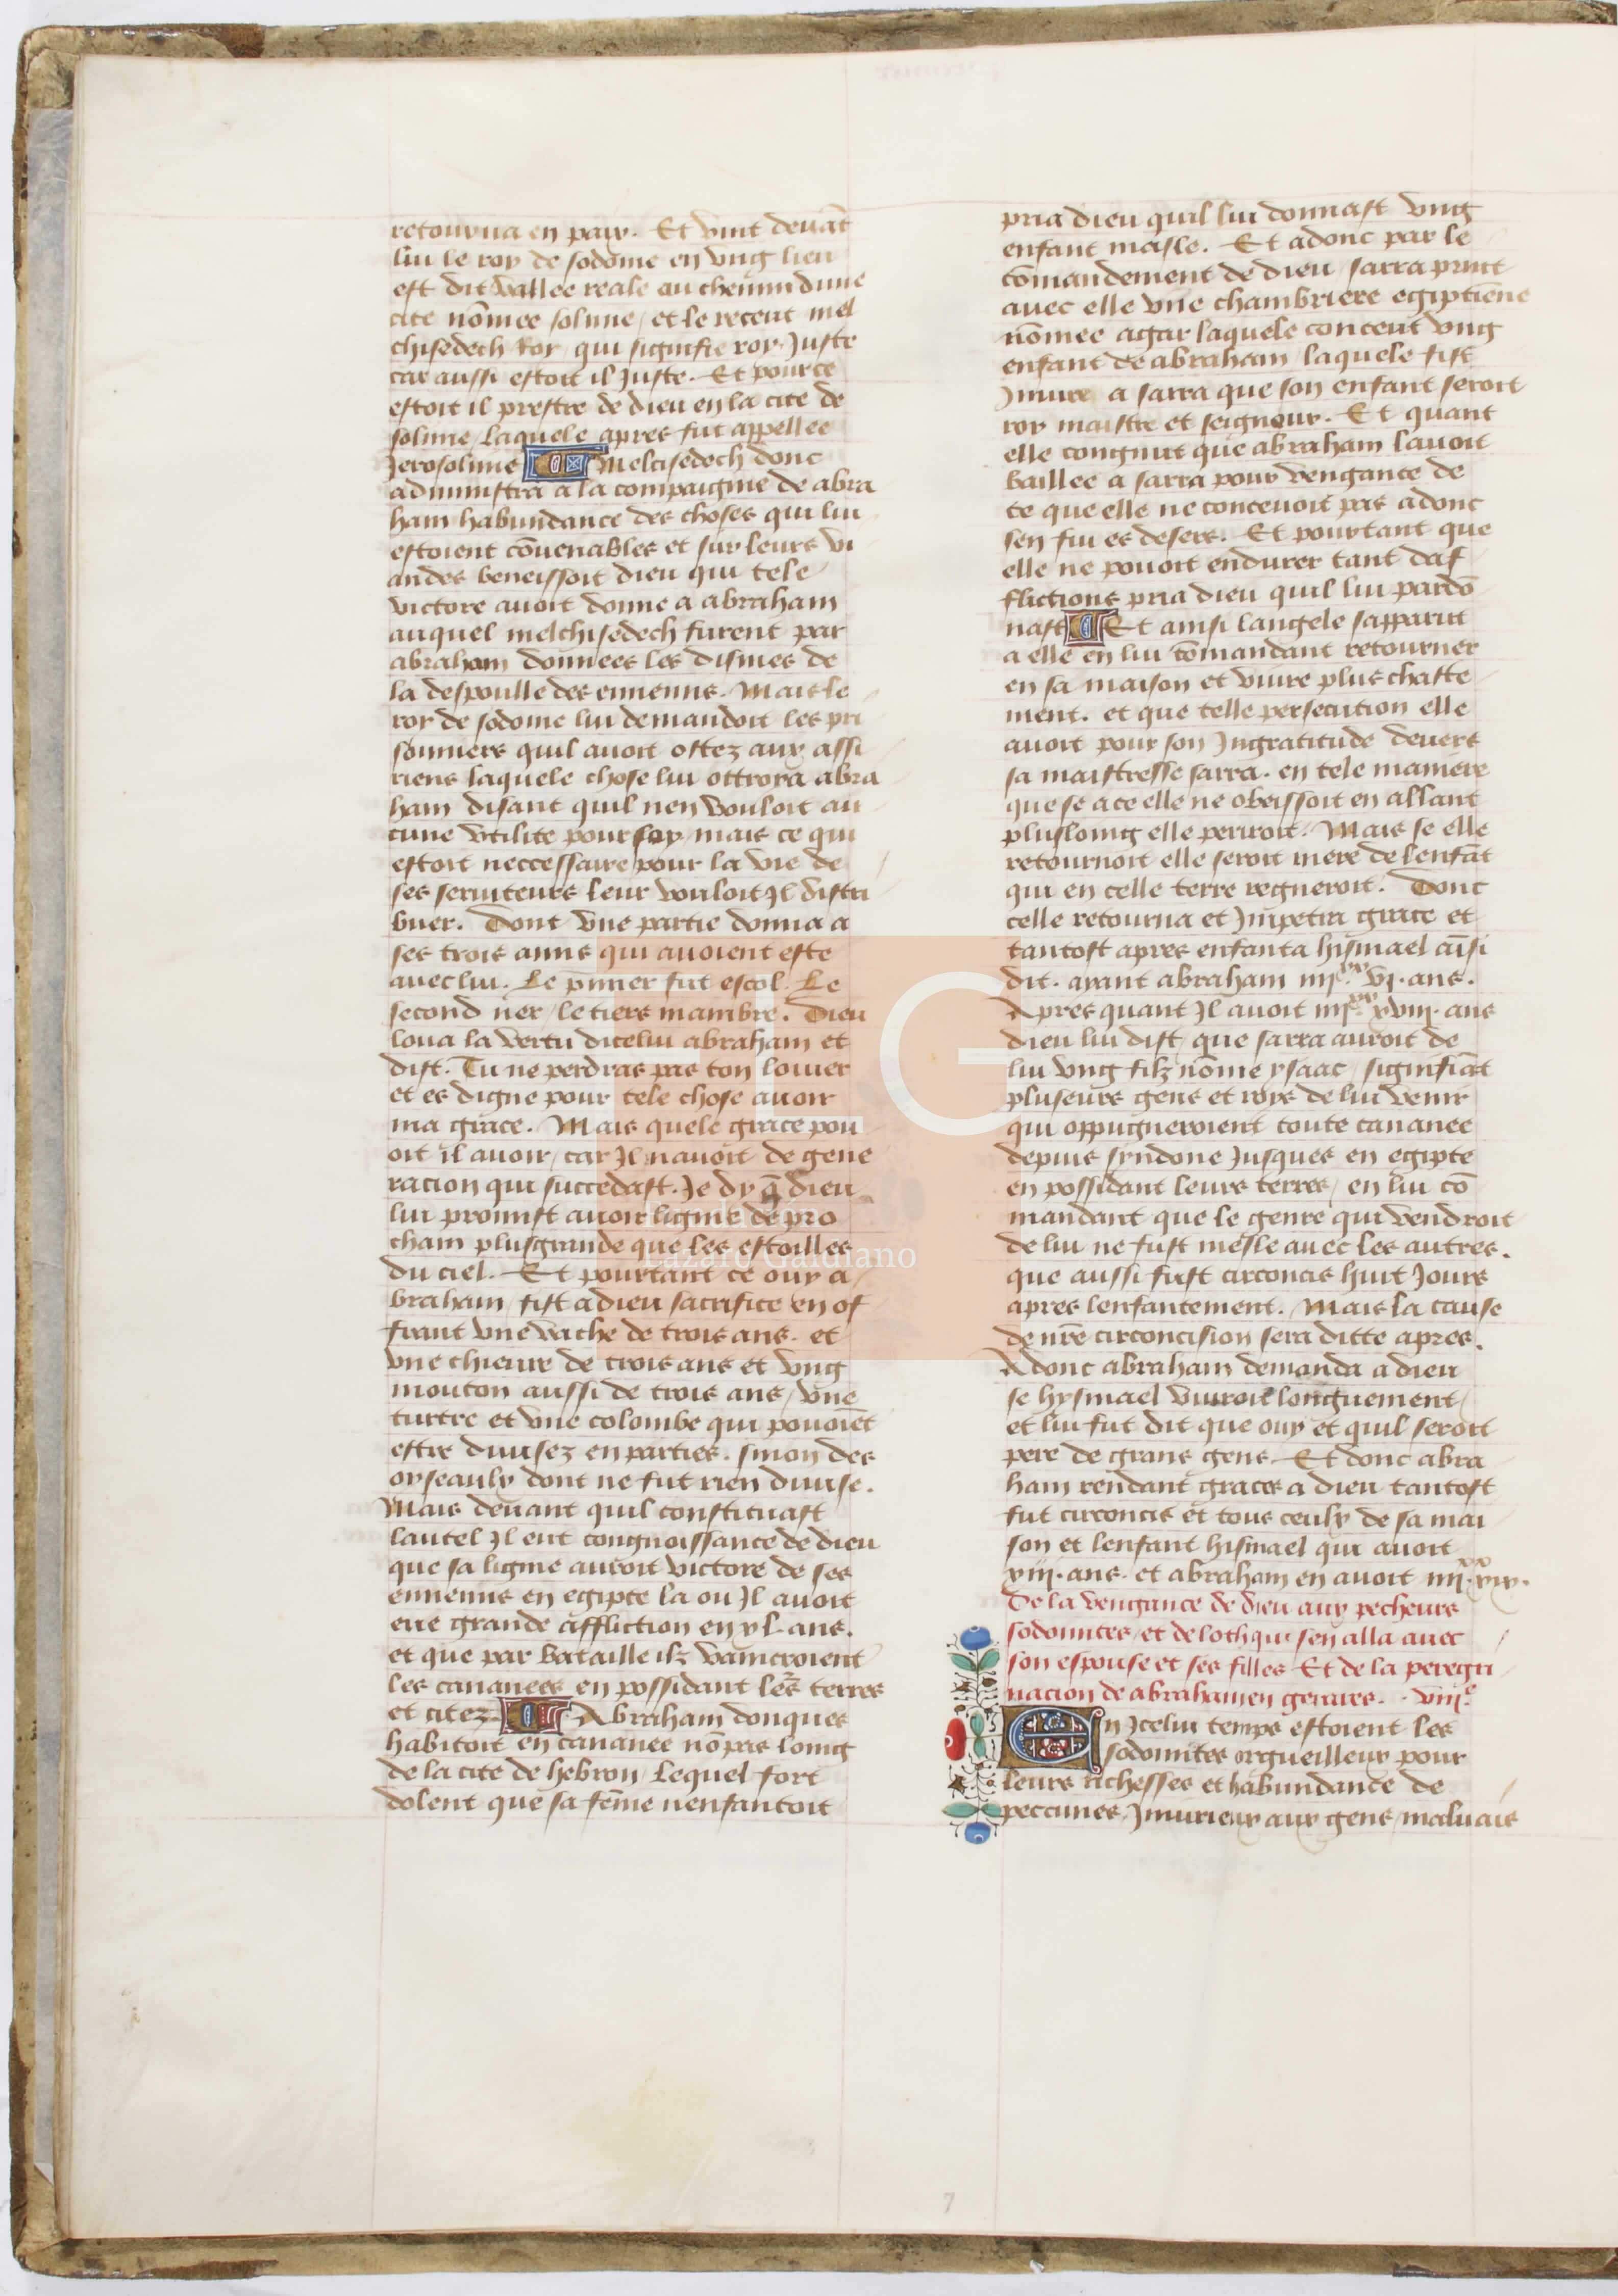 retourna en paix. Et vint deuāt
lui le roy de sodome en vng lieu
est dit vallee reale au chemin dune
cite nōmee solime / et le receut mel
chisedech Roy qui signifie roy Juste
car aussi estoit il Juste. Et pour ce
estoit il prestre de dieu en la cite de
solime / laquele apres fut appellee
Jerosolime Melcisedech donc
administra a la compaignie de abra
ham habundance des choses qui lui
estoient cōuenables et sur leurs vi
andes beneissoit dieu qui tele
victore auoit donne a abraham
auquel melchisedech furent par
abraham donnees les dismes de
la despoulle des ennemis. Mais le
roy de sodome lui demandoit les pri
sonniers quil auoit ostez aux assi
riens laquele chose lui ottroya abra
ham disant quil nen vouloit au
cune vtilite pour soy mais ce qui
estoit neccessaire pour la vie de
ses seruiteurs leur vouloit Il distri
buer. Dont vne partie donna a
ses trois amis qui auoient este
auec lui. Le p̄mier fut escol. Le
second ner / le tiers mambre. Dieu
loua la vertu dicelui abraham et
dist. Tu ne perdras pas ton louier
et es digne pour tele chose auoir
ma grace. Mais quele grace pou
oit il auoir / car Il nauoit de gene
racion qui succedast. Je dy q̄ dieu
lui promist auoir lignie de pro
cham plusgrande que les estoilles
du ciel. Et pourtant ce ouy a
braham / fist a dieu sacrifice en of
frant vne vache de trois ans. et
vne chieure de trois ans et vng
mouton aussi de trois ans / vne
turtre et vne colombe qui pouoiēt
estre diuisez en parties. sinon des
oyseaulx dont ne fut rien diuise.
Mais deuant quil constituast
lautel Il eut congnoissance de dieu
que sa lignie auroit victore de ses
ennemis en egipte la ou Il auoit
eue grande affliction en xl. ans.
et que par bataille ilz vaincroient
les cananees en possidant leᷣs terres
et citez Abraham donques
habitoit en cananee nō pas loing
de la cite de hebron / Lequel fort
dolent que sa fēme nenfantoit
pria dieu quil lui donnast vng
enfant masle. Et adonc par le
cōmandement de dieu / sarra print
auec elle vne chambriere egiptiēne
nōmee agar laquele conceut vng
enfant de abraham / laquele fist
Iniure a sarra que son enfant seroit
roy maistre et seigneur. Et quant
elle congnut que abraham lauoit
baillee a sarra pour vengance de
ce que elle ne conceuoit pas adonc
sen fui es desers. Et pourtant que
elle ne pouoit endurer tant daf
flictions pria dieu quil lui pardō
nast Et ainsi langele sapparut
a elle en lui cōmandant retourner
en sa maison et viure plus chaste
ment. et que telle persecution elle
auoit pour son Ingratitude deuers
sa maistresse sarra. en tele maniere
que se a ce elle ne obeissoit en allant
plusloing elle periroit. Mais se elle
retournoit elle seroit mere de lenfāt
qui en celle terre regneroit. Donc
celle retourna et Impetra grace et
tantost apres enfanta hismael aīsi
dit. ayant abraham iiijˣˣ. vj. ans.
Apres quant Il auoit iiijˣˣ xviij. ans
dieu lui dist / que sarra auroit de
lui vng filz nōme ysaac / signifiāt
pluseurs gens et roys de lui venir
qui oppugneroient toute cananee
depuis syndone Jusques en egipte
en possidant leurs terres / en lui cō
mandant que le genre qui vendroit
de lui ne fust mesle auec les autres.
que aussi fust circoncis huit Jours
apres lenfantement. Mais la cause
de nr̄e circoncision sera ditte apres.
Adonc abraham demanda a dieu
se hysmael viuroit longuement /
et lui fut dit que ouy et quil seroit
pere de grans gens. Et donc abra
ham rendant graces a dieu tantost
fut circoncis et tous ceulx de sa mai
son et lenfant hismael qui auoit
xiij. ans. et abraham en auoit iiijˣˣ. xix.
De la vengance de dieu aux pecheurs
sodomites / et de loth qui sen alla auec
son espouse et ses filles Et de la peregri
nacion de abraham en gerares. . viijᵉ
En Icelui temps estoient les
sodomites orgueilleux pour
leurs richesses et habundance de
peccunes / Iniurieux aux gens / maluais
7
Lázaro Galdiano